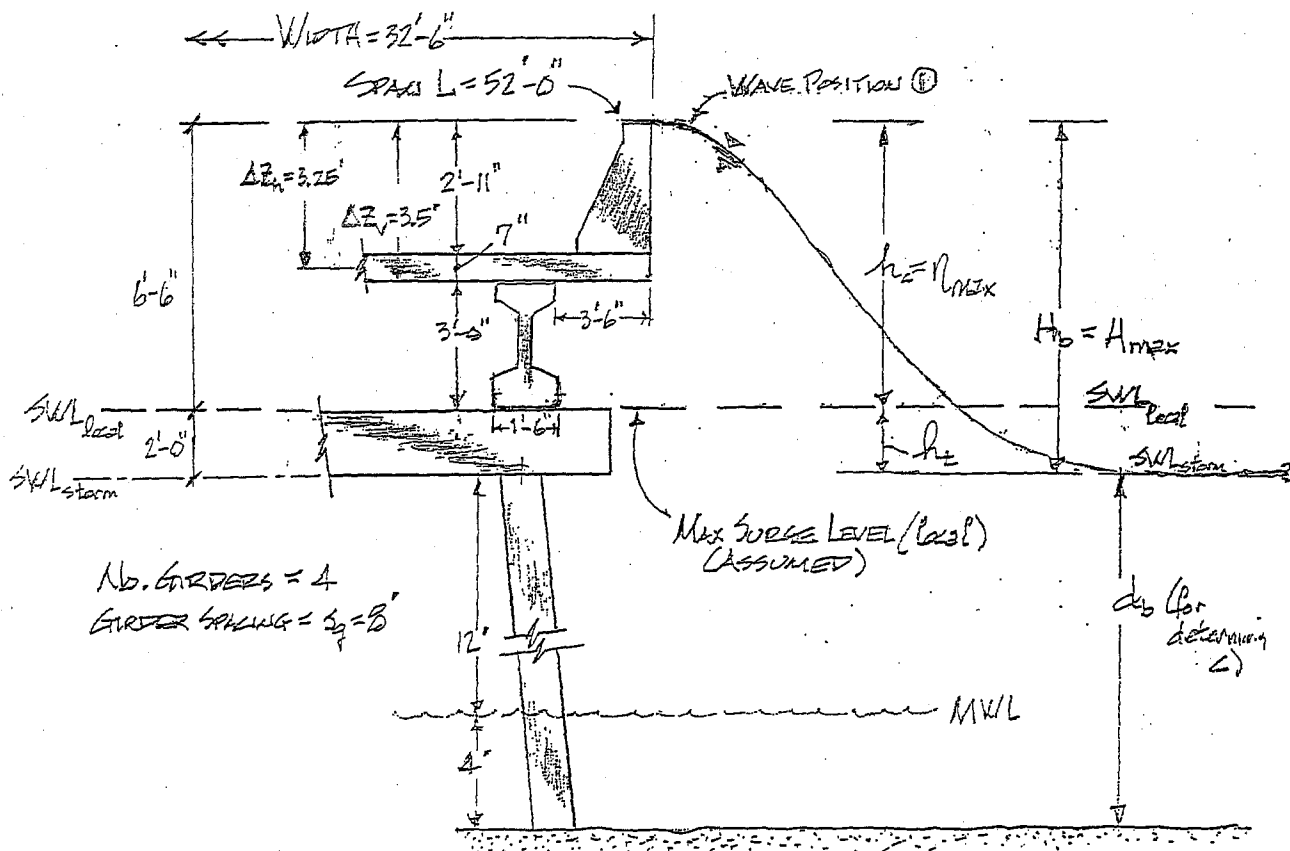 WIDTH = 32'-6"
SPAN L = 52'-0"
WAVE POSITION ①
ΔZh = 3.25'
2'-11"
ΔZv = 3.5'
7"
6'-6"
3'-6"
hc = ηmax
Hb = Hmax
SWL local
1'-6"
SWL local
2'-0"
ht
SWL storm
SWL storm
MAX SURGE LEVEL (local)
(ASSUMED)
No. GIRDERS = 4
GIRDER SPACING = sg = 8'
12'
db (for
determining
c)
MWL
4'